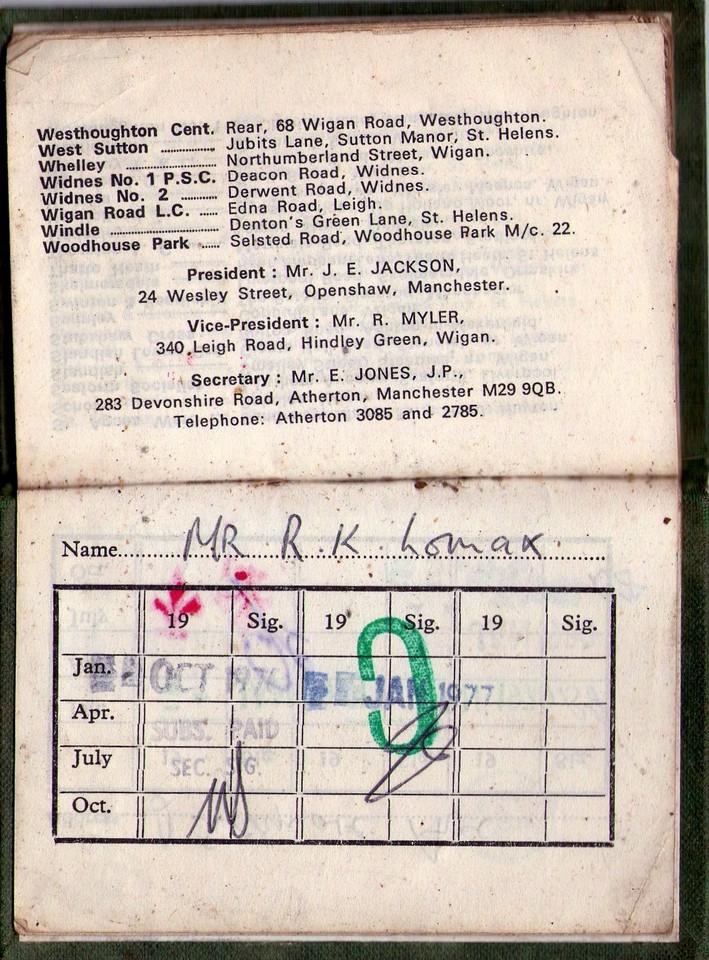 Westhoughton Cent. Rear, 68 Wigan Road, Westhoughton.
West Sutton .............. Jubits Lane, Sutton Manor, St. Helens.
Whelley .................... Northumberland Street, Wigan.
Widnes No. 1 P.S.C. Deacon Road, Widnes.
Widnes No. 2 .......... Derwent Road, Widnes.
Wigan Road L.C. ..... Edna Road, Leigh.
Windle ...................... Denton's Green Lane, St. Helens.
Woodhouse Park ..... Selsted Road, Woodhouse Park M/c. 22.
President : Mr. J. E. JACKSON,
24 Wesley Street, Openshaw, Manchester.
Vice-President : Mr. R. MYLER,
340 Leigh Road, Hindley Green, Wigan.
Secretary : Mr. E. JONES, J.P.,
283 Devonshire Road, Atherton, Manchester M29 9QB.
Telephone: Atherton 3085 and 2785.
Name MR R. K. Lomax
19 Sig. 19 Sig. 19 Sig.
Jan.
OCT JAN 1977
Apr.
SUBS. PAID
July
SEC. SIG.
Oct.